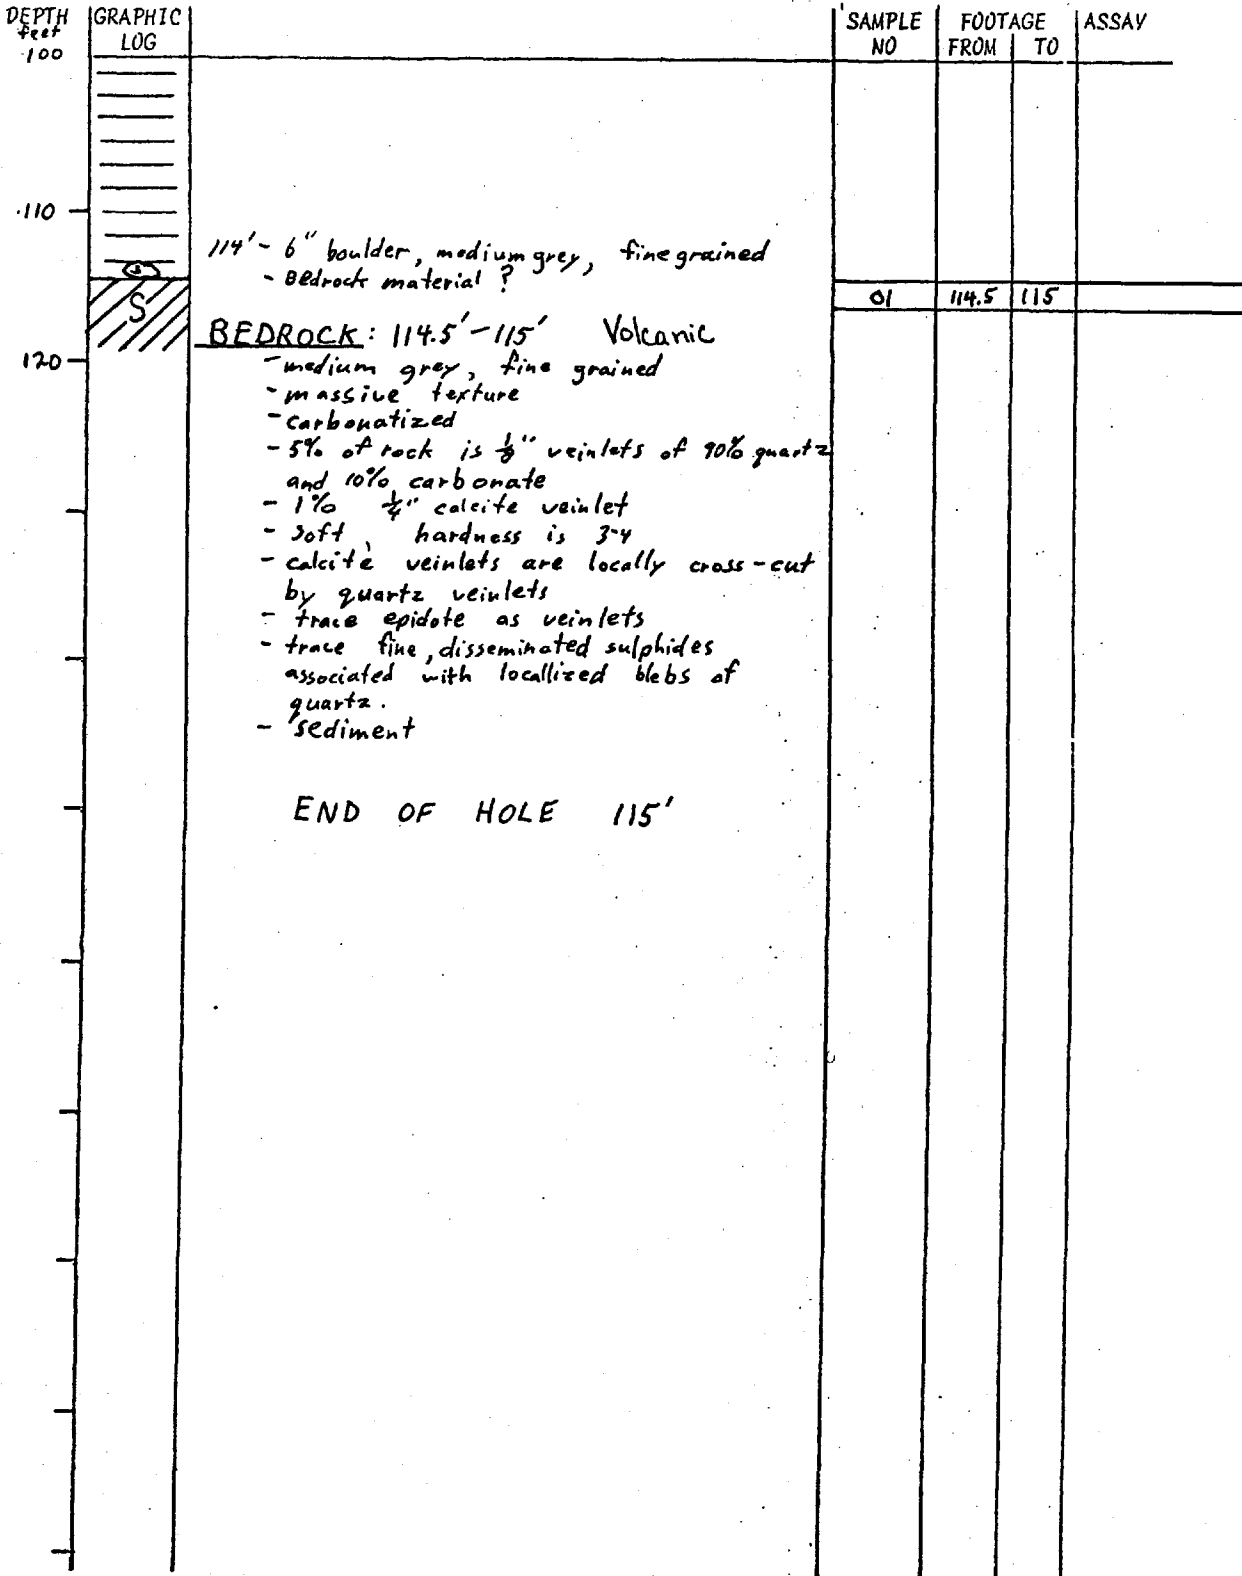 DEPTH feet
GRAPHIC LOG
SAMPLE NO
FOOTAGE
FROM TO
ASSAY
100
110
114' - 6" boulder, medium grey, fine grained
- Bedrock material ?
01 114.5 115
S
BEDROCK: 114.5' - 115' Volcanic
120
- medium grey, fine grained
- massive texture
- carbonatized
- 5% of rock is 1/8" veinlets of 90% quartz
and 10% carbonate
- 1% 1/4" calcite veinlet
- soft, hardness is 3-4
- calcite veinlets are locally cross-cut
by quartz veinlets
- trace epidote as veinlets
- trace fine, disseminated sulphides
associated with locallized blebs of
quartz.
- sediment
END OF HOLE 115'